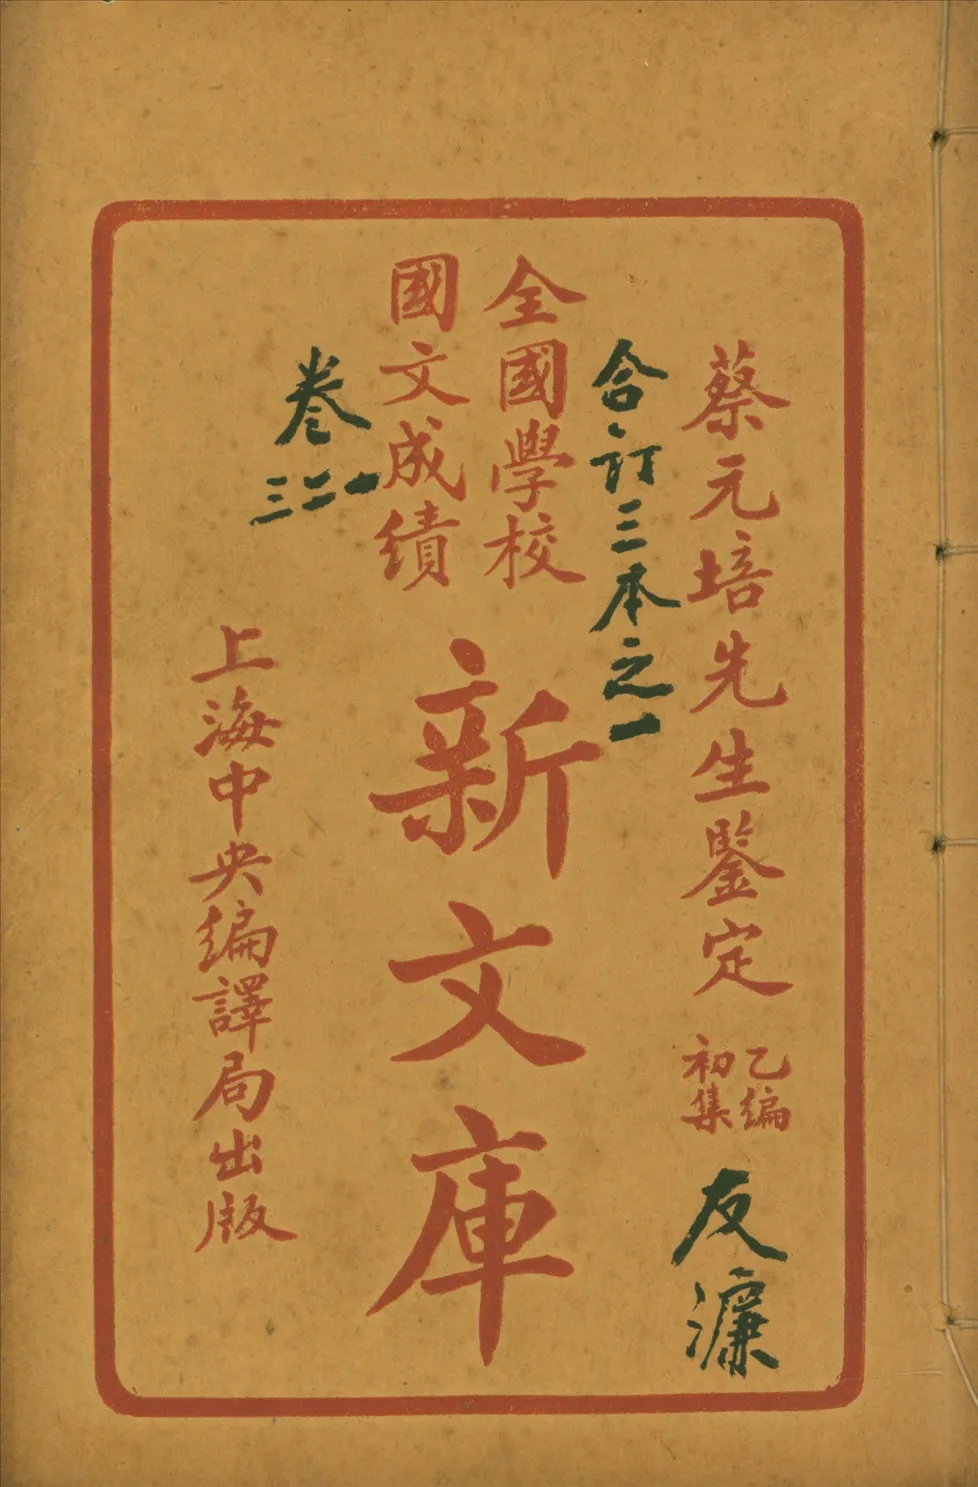 蔡元培先生鑒定
乙編
初集
反濂
合訂三本之一
全國學校
國文成績
新文庫
卷
一
二
三
上海中央編譯局出版